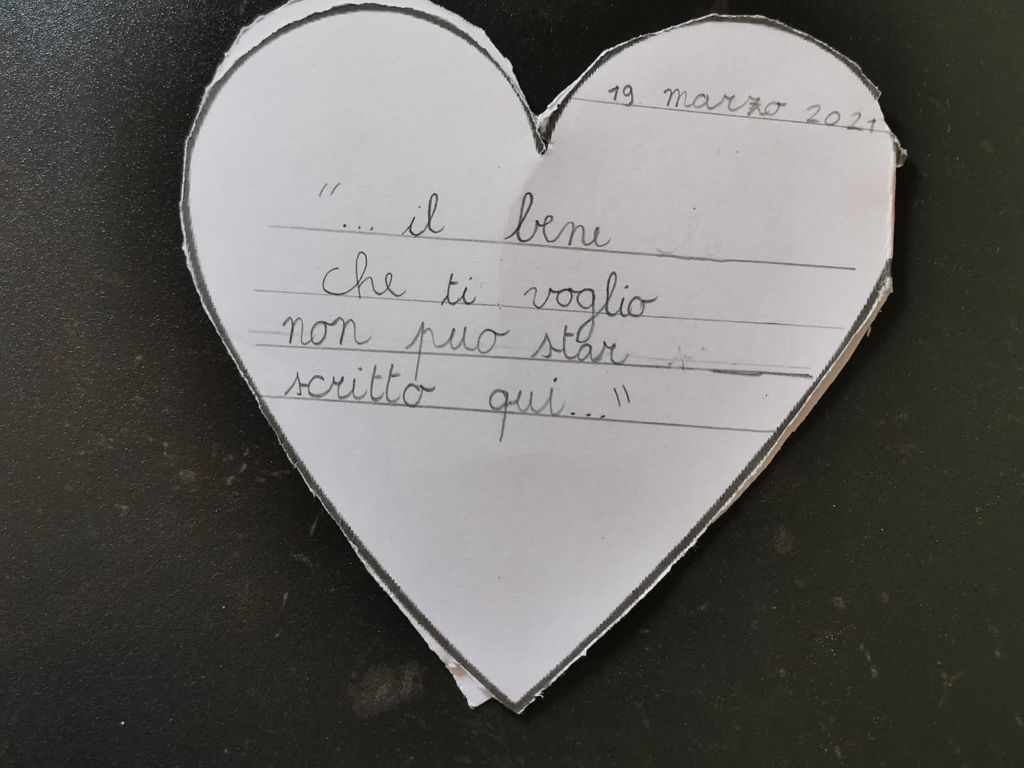 19 marzo 2021
"... il bene
che ti voglio
non puo star
scritto qui..."